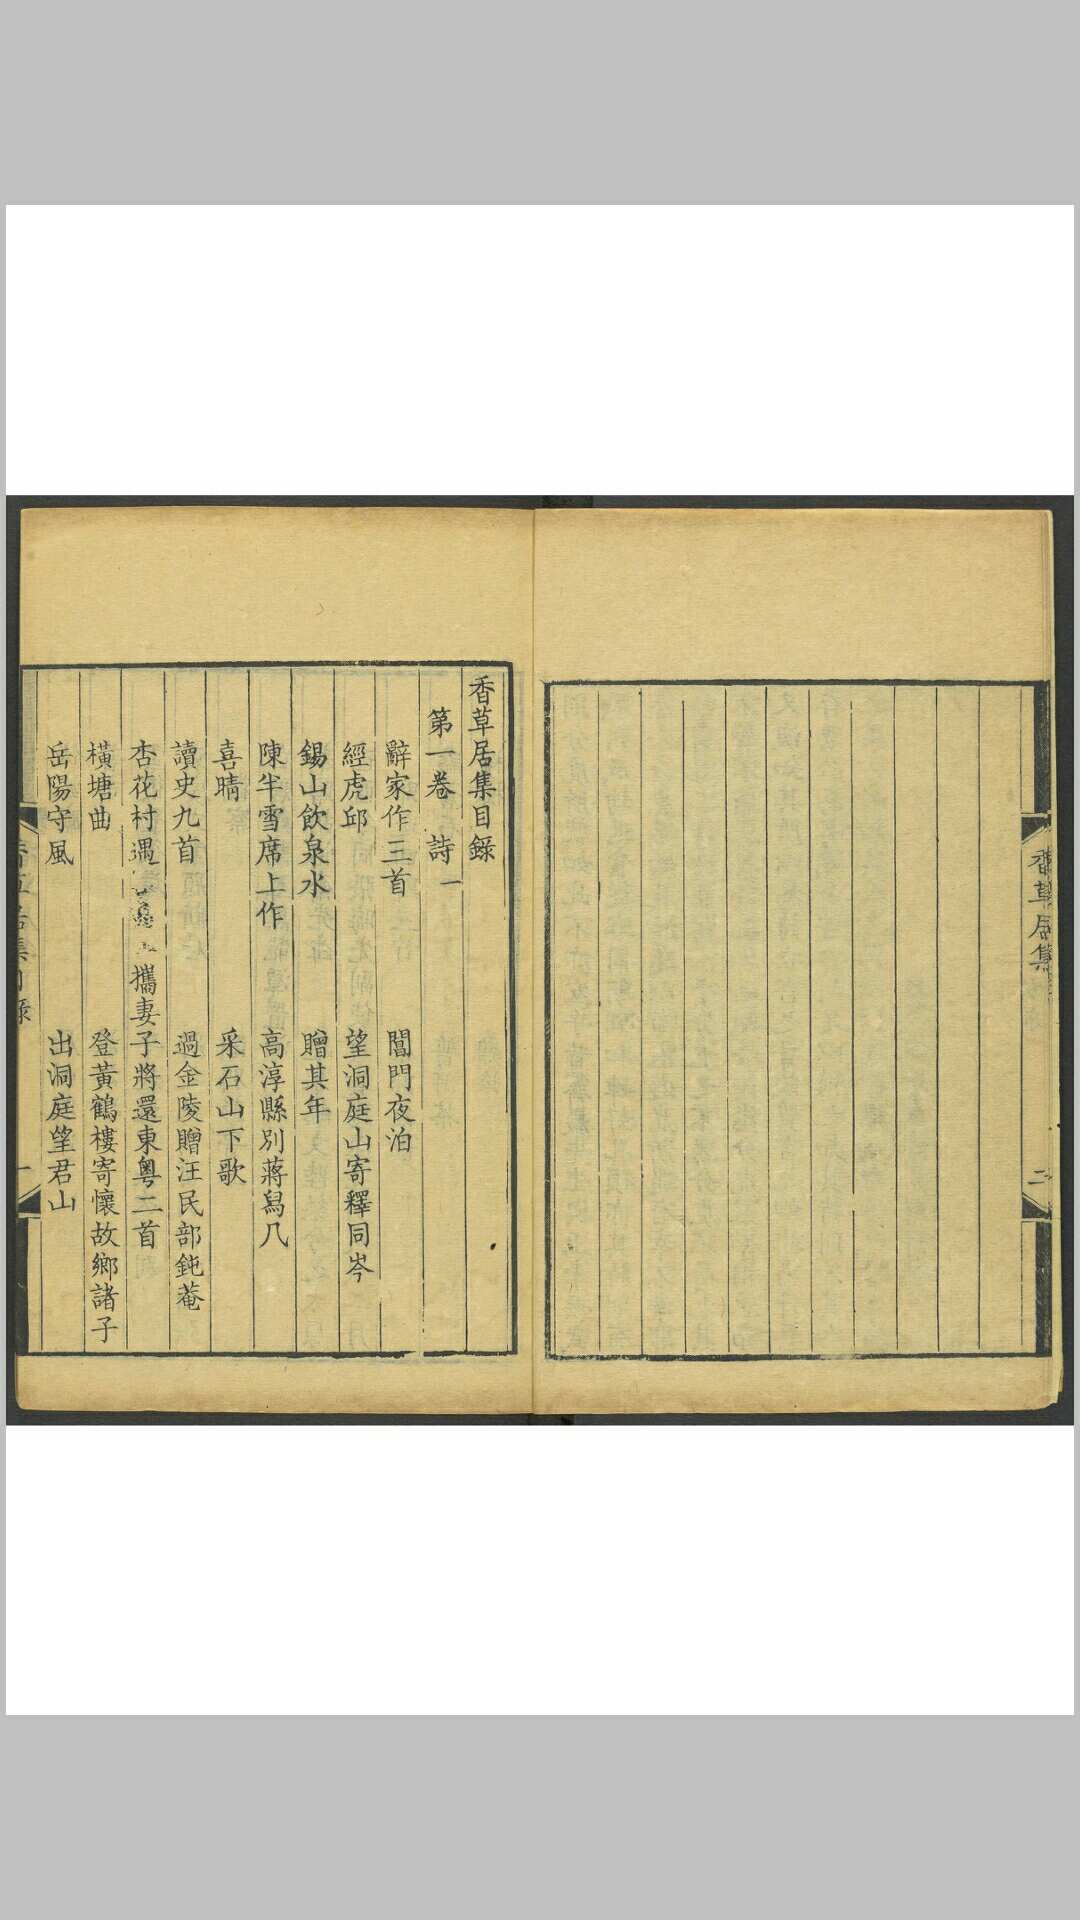 香草居集
二
香草居集目錄
第一卷 詩一
辭家作三首 閶門夜泊
經虎邱 望洞庭山寄釋同岑
錫山飲泉水 贈其年
陳半雪席上作 高淳縣別蔣舄几
喜晴 采石山下歌
讀史九首 過金陵贈汪民部鈍菴
杏花村遇 攜妻子將還東粵二首
橫塘曲 登黃鶴樓寄懷故鄉諸子
岳陽守風 出洞庭望君山